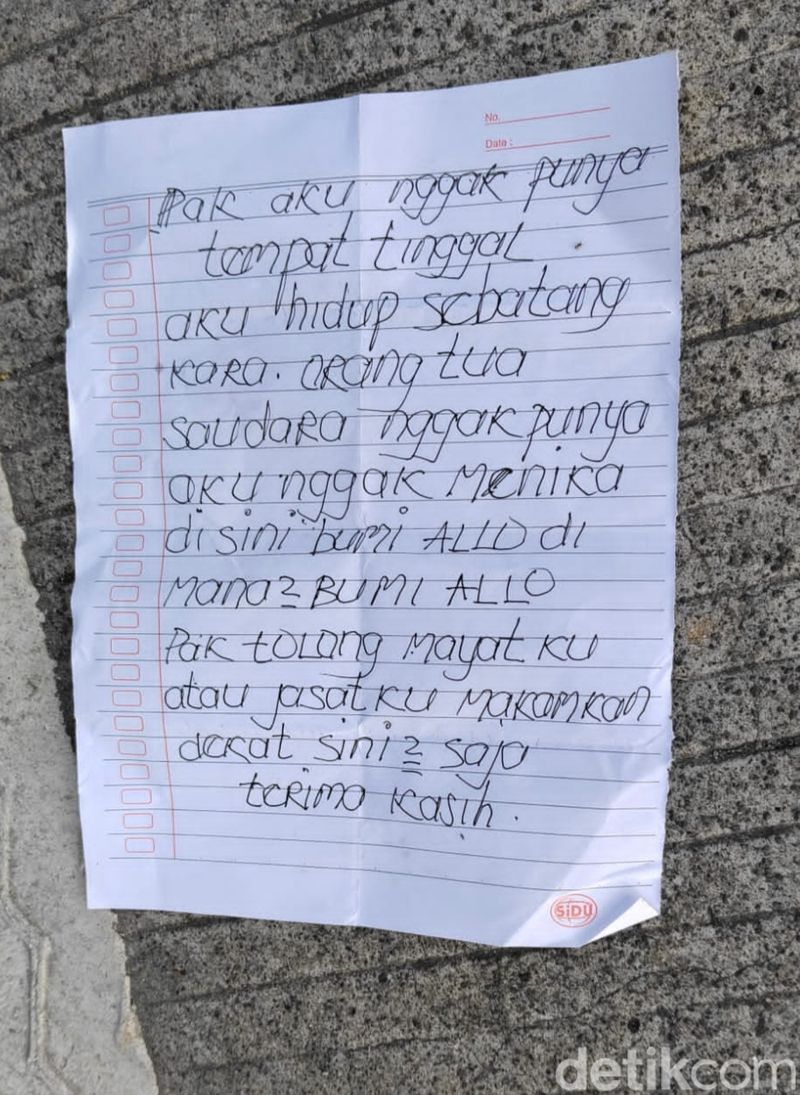 No.
Date :
Pak aku nggak punya
tempat tinggal.
aku hidup sebatang
kara. orang tua
saudara nggak punya
aku nggak menika
disini bumi ALLO di
mana2 BUMI ALLO
Pak tolong mayat ku
atau jasatku makamkan
dekat sini2 saja
terima kasih.
SiDU
detikcom